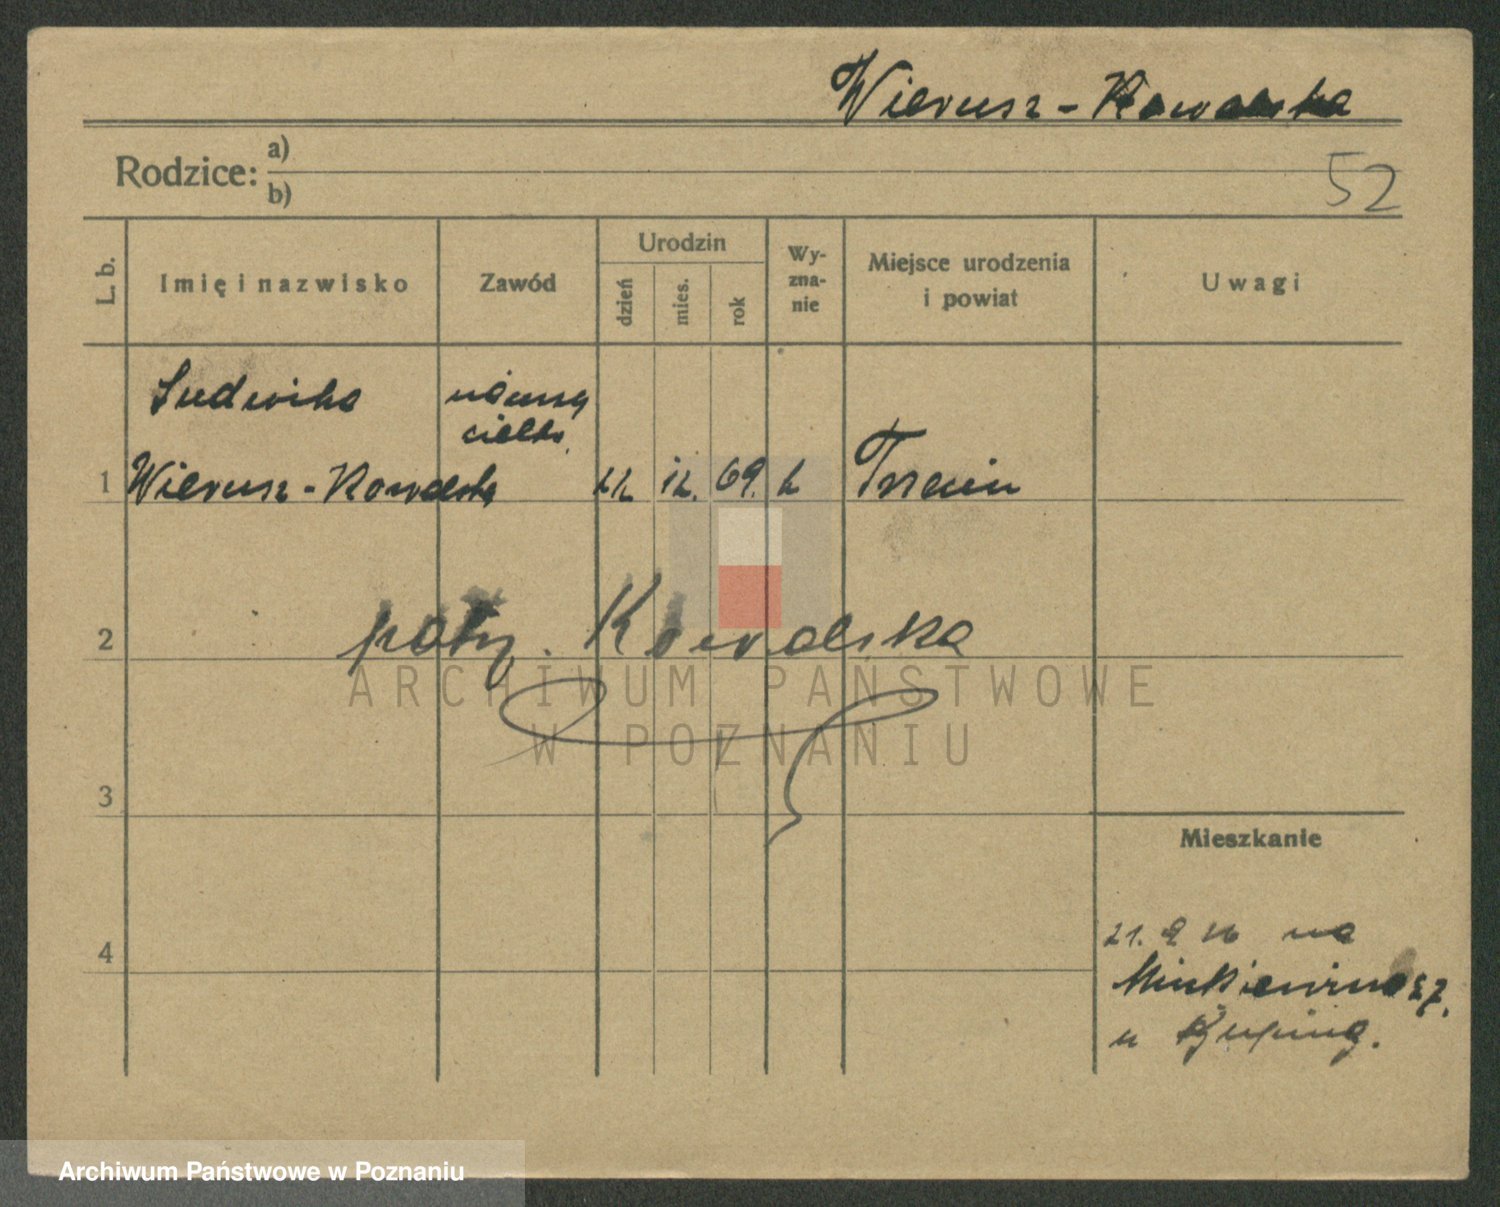 Wierusz-Kowalska
Rodzice: a)
b)
52
L. b.
Imię i nazwisko
Zawód
Urodzin
dzień
mies.
rok
Wy-
zna-
nie
Miejsce urodzenia
i powiat
Uwagi
Ludwika
nauczy
cielka
1 Wierusz-Kowalska 12. 69. k
2 patrz. Kowalska
ARCHIWUM PAŃSTWOWE
W POZNANIU
3
Mieszkanie
4
21. 9 26 na
Mickiewicza 27.
u
Archiwum Państwowe w Poznaniu